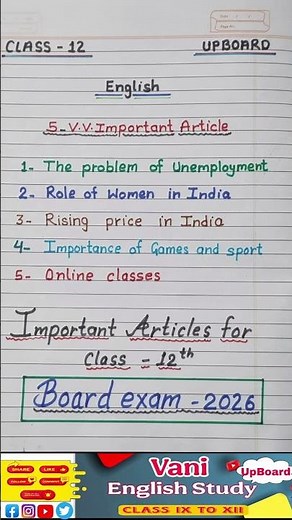 CLASS - 12 UPBOARD
English
5-V.V.Important Article
1- The problem of Unemployment
2- Role of Women in India
3- Rising price in India
4- Importance of Games and sport
5- Online classes
Important Articles for
Class - 12th
Board exam - 2026
SHARE LIKE
Vani UpBoard
English Study
CLASS IX TO XII